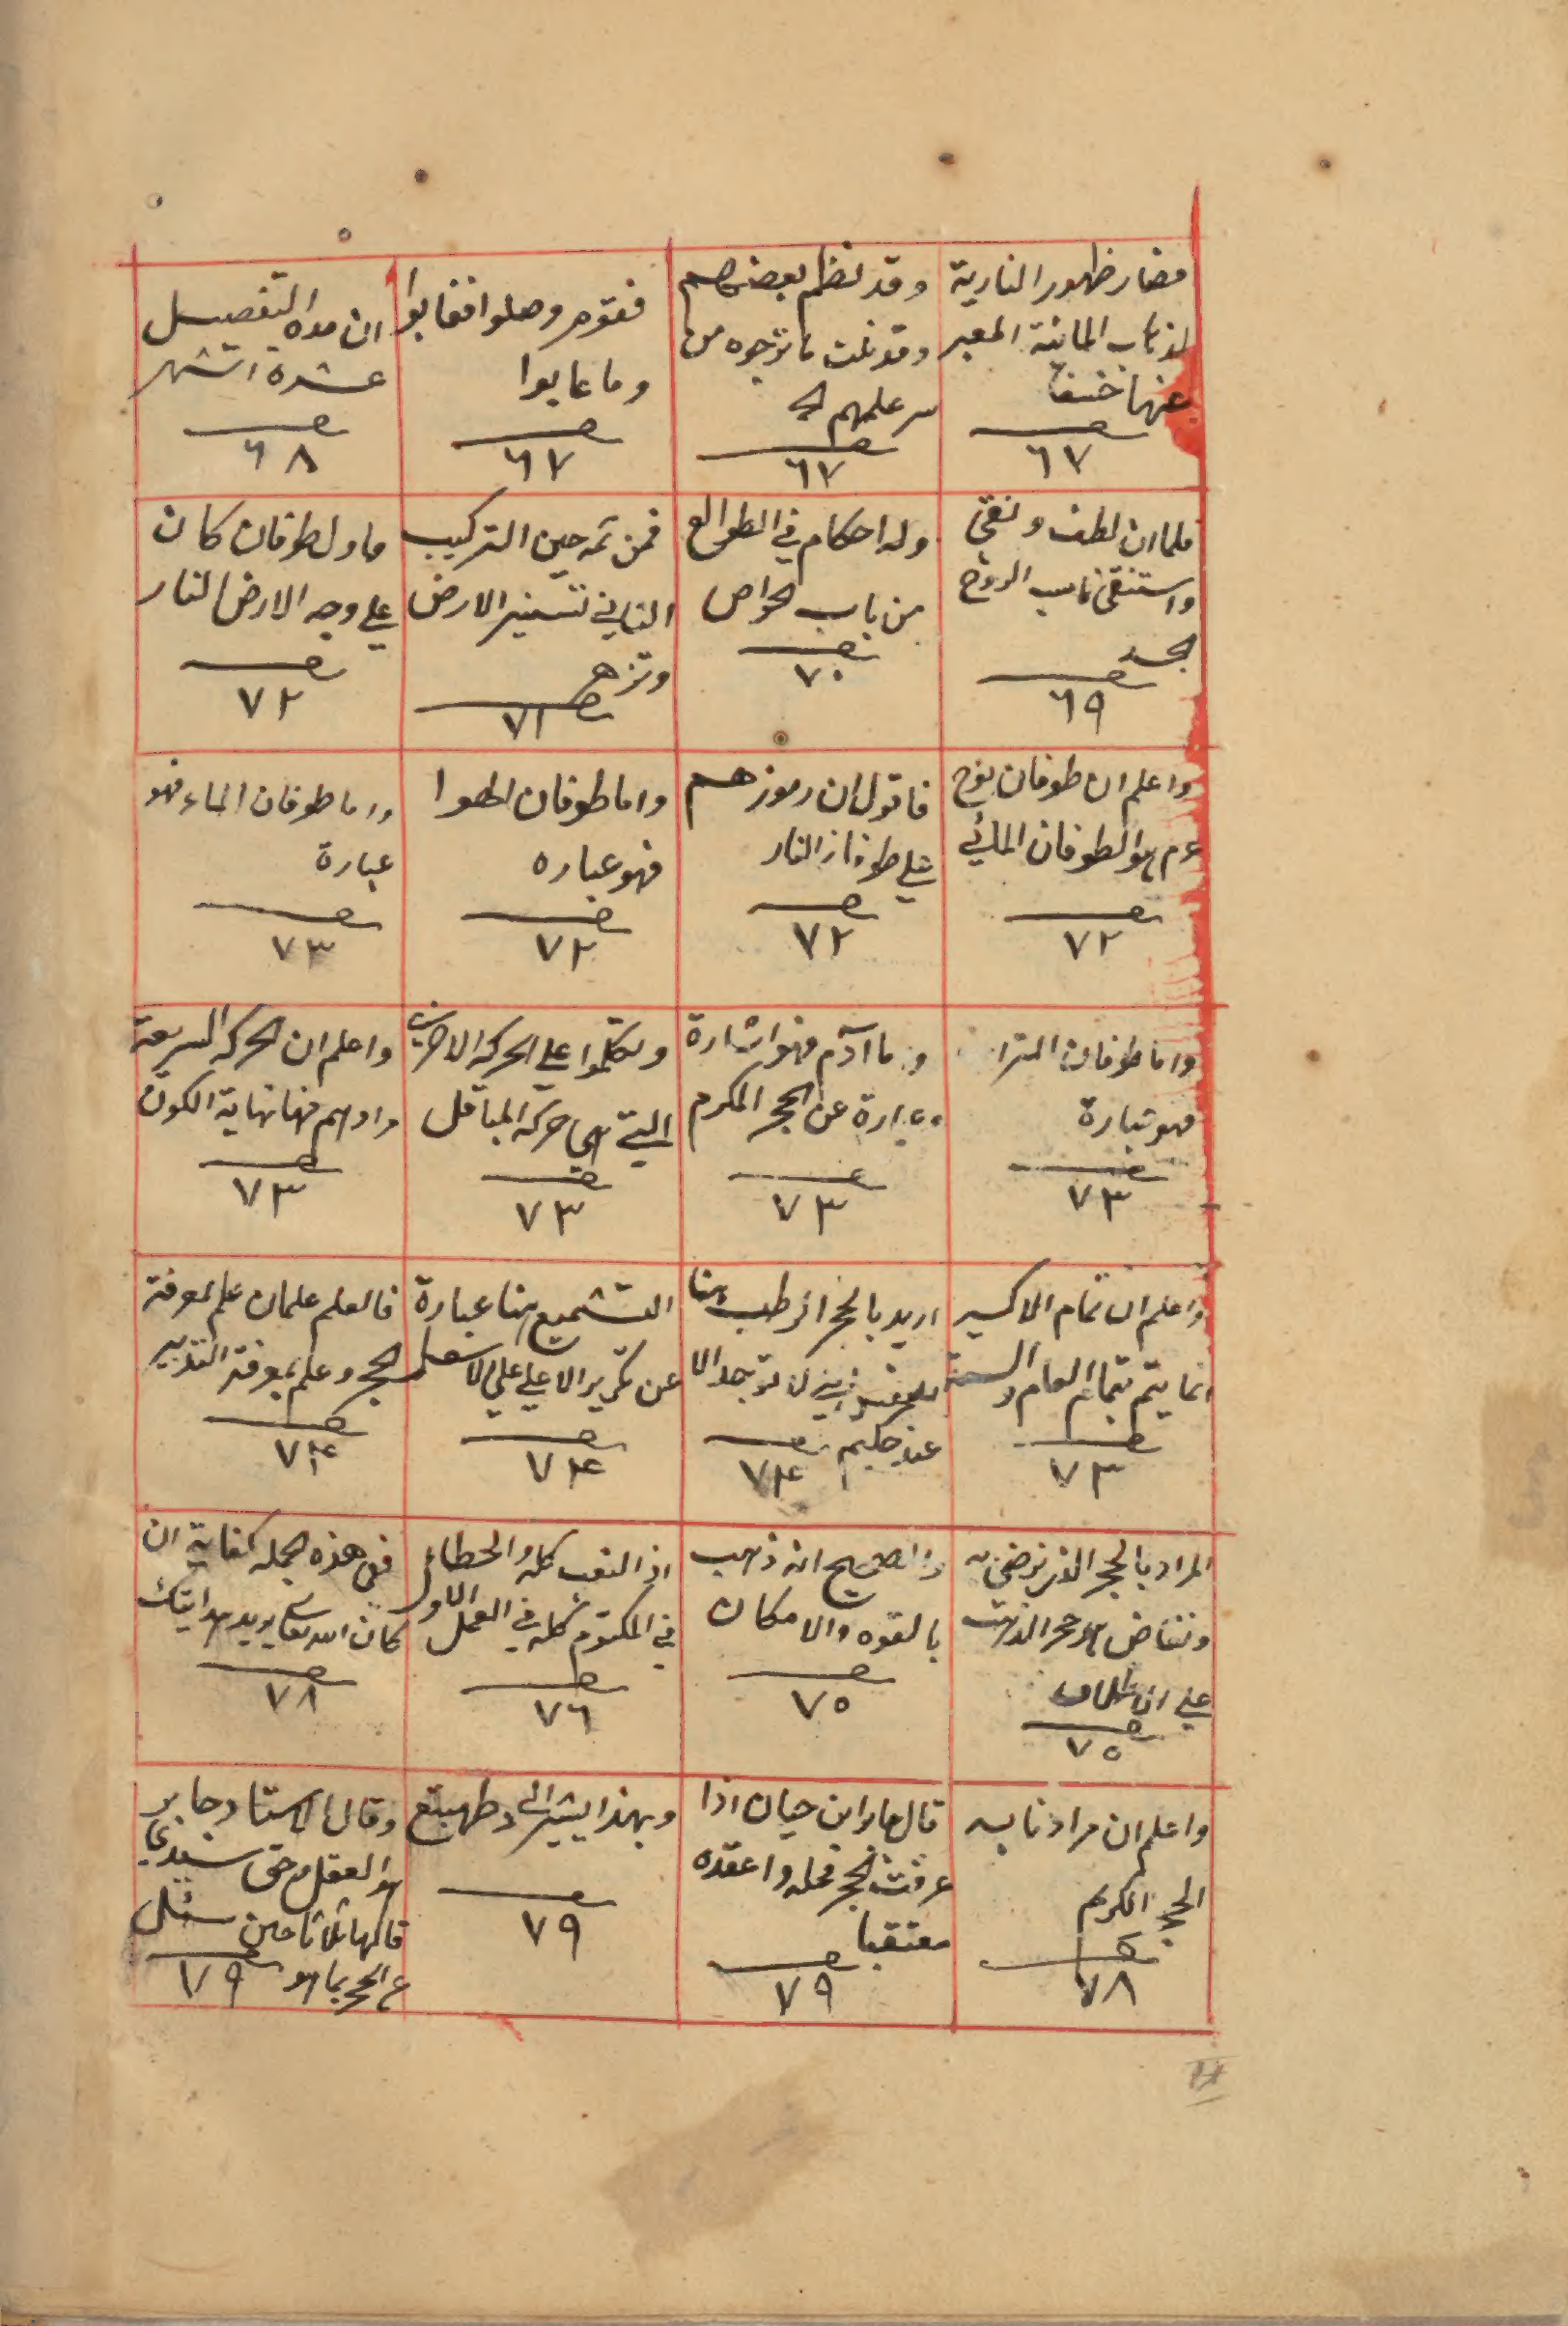 فصار ظهور النارية
لذهاب المائية المعبر
عنها
٦٧
وقد نظم بعضهم
وقد نلت ما ترجوه من
سر علمهم
٦٧
فقوم وصلوا فغابوا
وما عابوا
٦٧
ان مده التفصيل
عشرة اشهر
٦٨
فلما ان لطف ونقى
واستنقى ناسب الروح
الجسد
٦٩
وله احكام في الطوالع
من باب الخواص
٧٠
فمن ثمه حين التركيب
الثاني تستنير الارض
وتزهر
٧١
فاول طوفان كان
على وجه الارض النار
٧٢
واعلم ان طوفان نوح
عم هو الطوفان المائي
٧٢
فاقول ان رموزهم
على طوفان النار
٧٢
واما طوفان الهوا
فهو عباره
٧٢
واما طوفان الماء فهو
عبارة
٧٣
واما طوفان التراب
فهو عبارة
٧٣
واما آدم فهو اشارة
وعبارة عن الحجر المكرم
٧٣
وتكلموا على الحركه
التي هي حركة
٧٣
واعلم ان الحركه السريعة
مرادهم فيها نهاية الكون
٧٣
واعلم ان تمام الاكسير
انما يتم بتمام العام والسنة
٧٣
اريد بالحجر الرطب هنا
لا توجد الا
عند حكيم
٧٤
التشميع هنا عبارة
عن تكرير الاعلى على الاسفل
٧٤
فالعلم علمان علم بمعرفة
الحجر وعلم بمعرفة التدبير
٧٤
المراد بالحجر الذي
هو حجر الذهب
على
٧٥
والصحيح انه ذهب
بالقوه والامكان
٧٥
اذ التعب كله والخطاء
في المكتوم كله في العمل الاول
٧٦
ففي هذه الجمله كفاية ان
كان الله تعالى يريد هدايتك
٧٨
واعلم ان مرادنا به
الحجر الكريم
٧٨
قال جابر ابن حيان اذا
عرفت الحجر فحله واعقده
٧٩
وبهذا يشير الى
٧٩
وقال الاستاد جابر
هو العقل وحق سيدي
قالها ثلاثا حين سئل
ع الحجر بما هو
٧٩